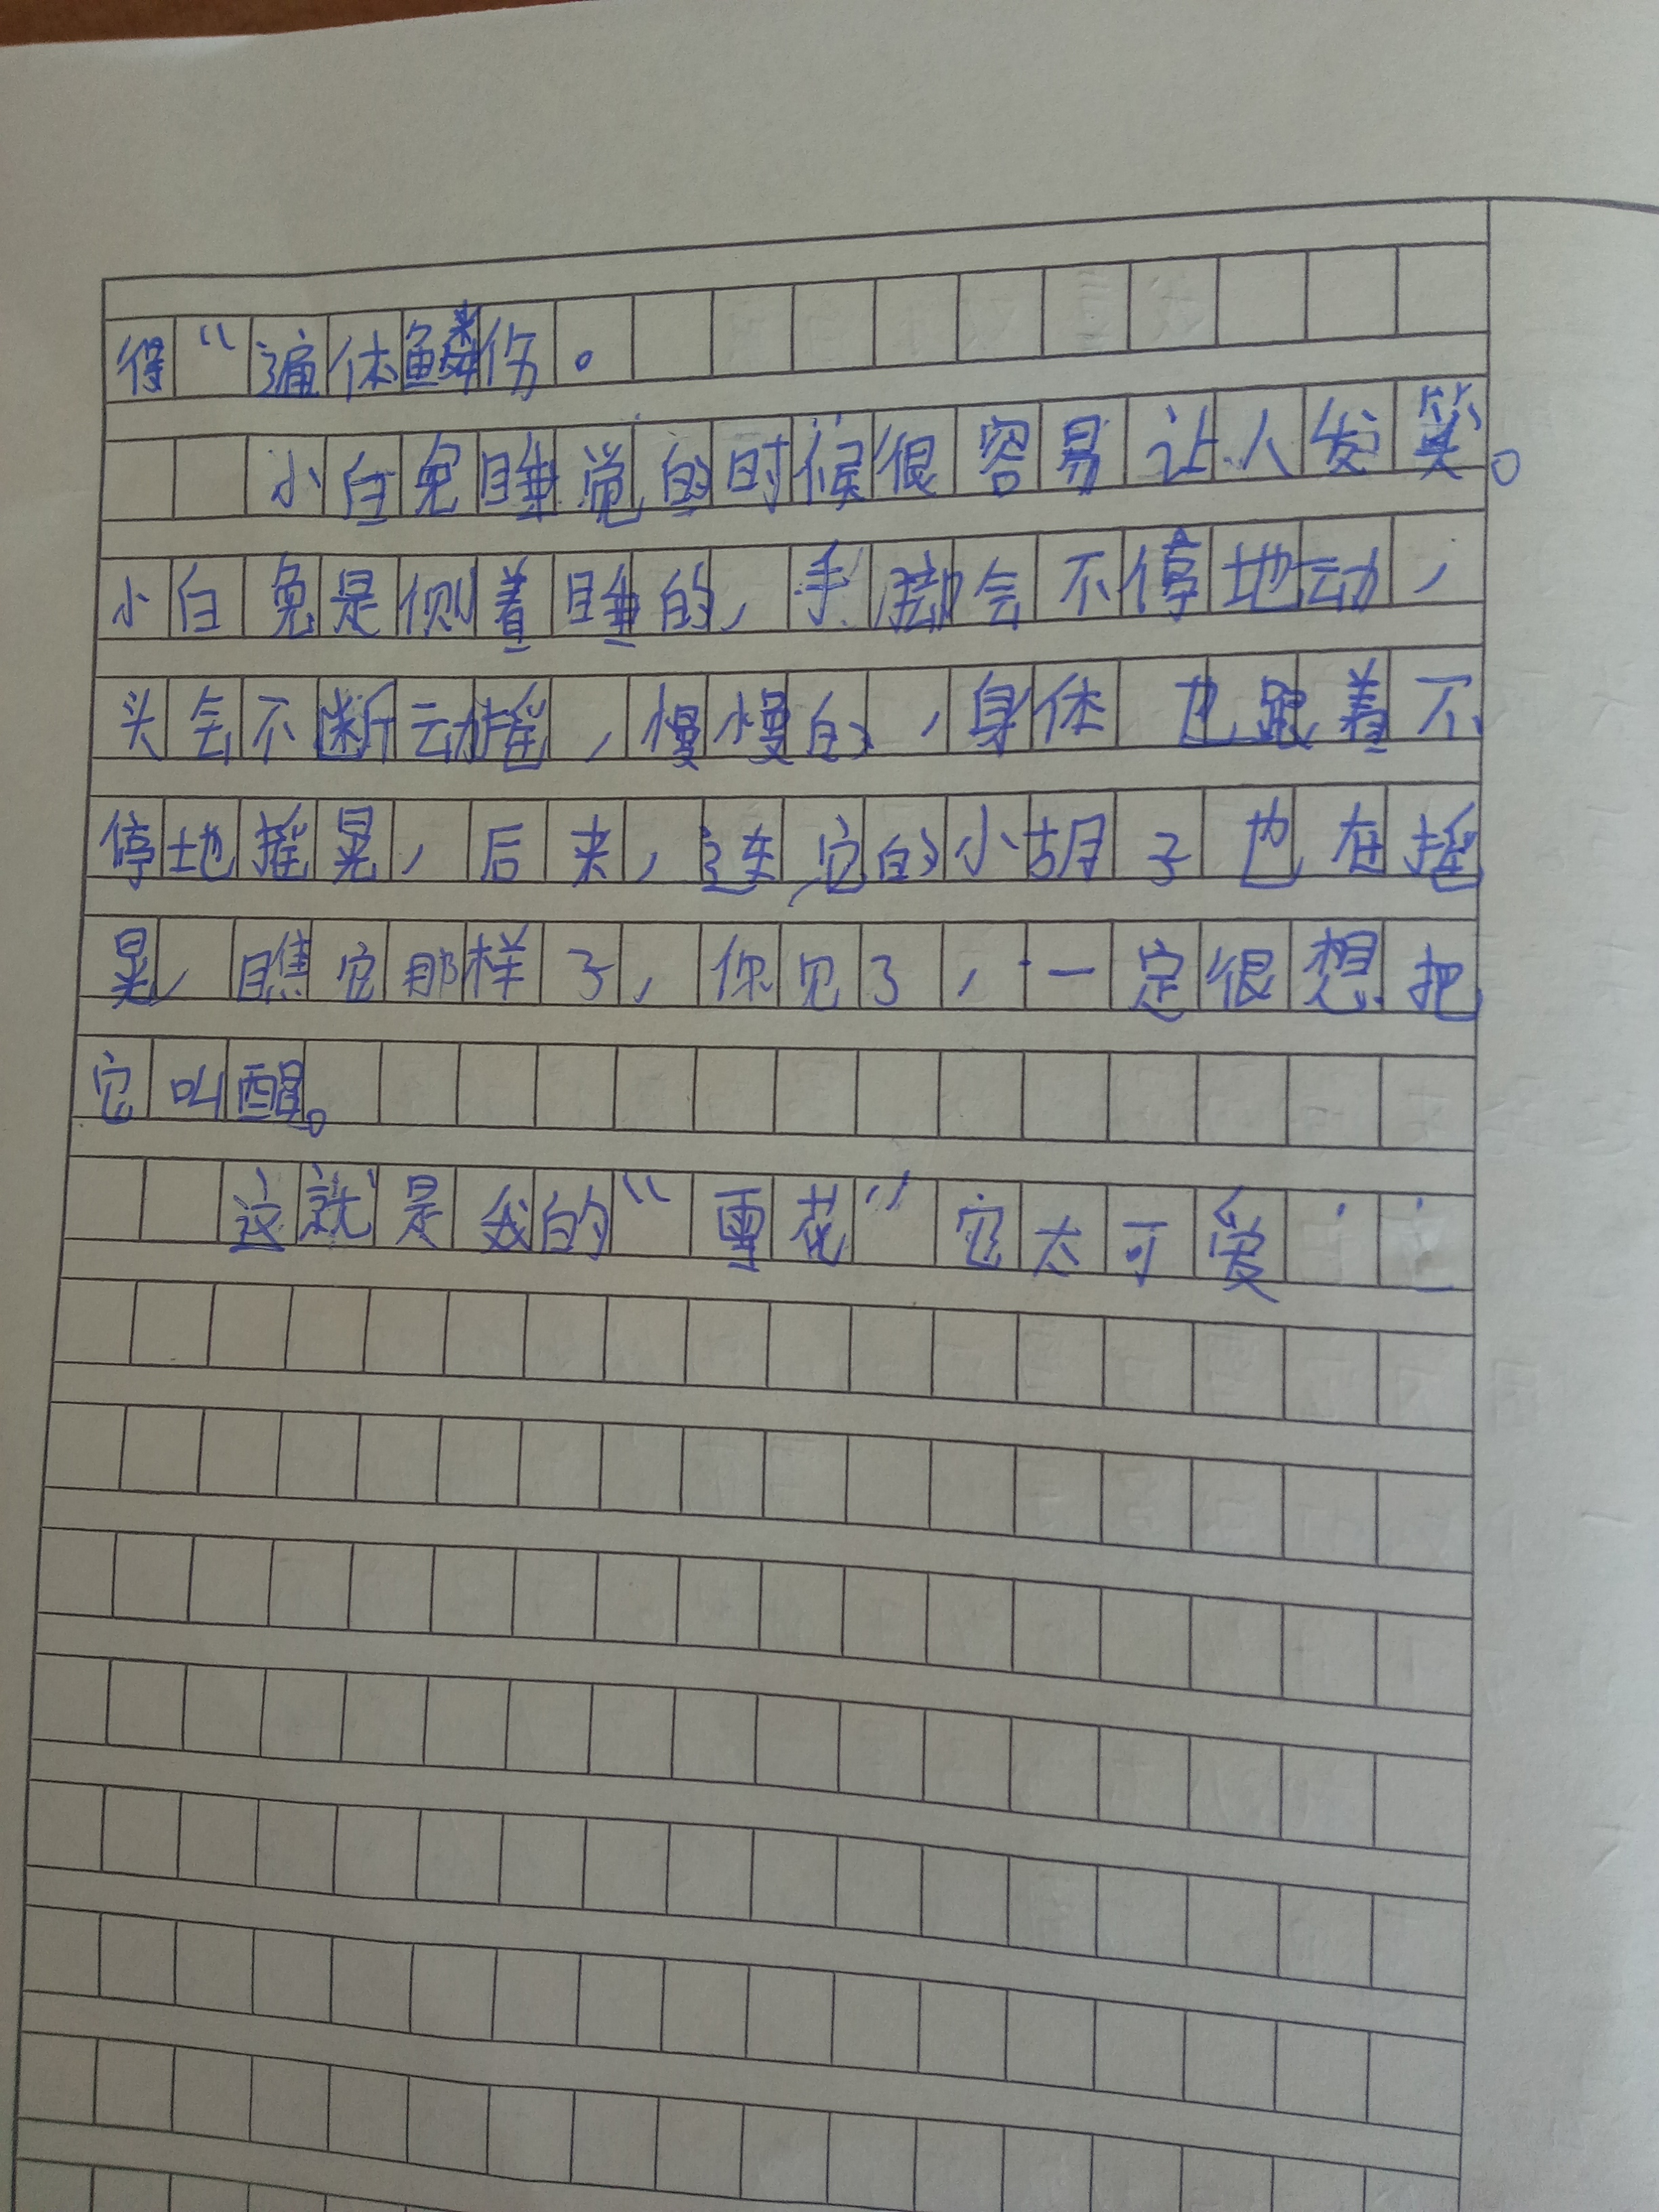 得“遍体鳞伤。
小白兔睡觉的时候很容易让人发笑。
小白兔是侧着睡的,手脚会不停地动,
头会不断动摇,慢慢的,身体也跟着不
停地摇晃,后来,连它的小胡子也在摇
晃,瞧它那样子,你见了,一定很想把
它叫醒。
这就是我的“雪花”它太可爱